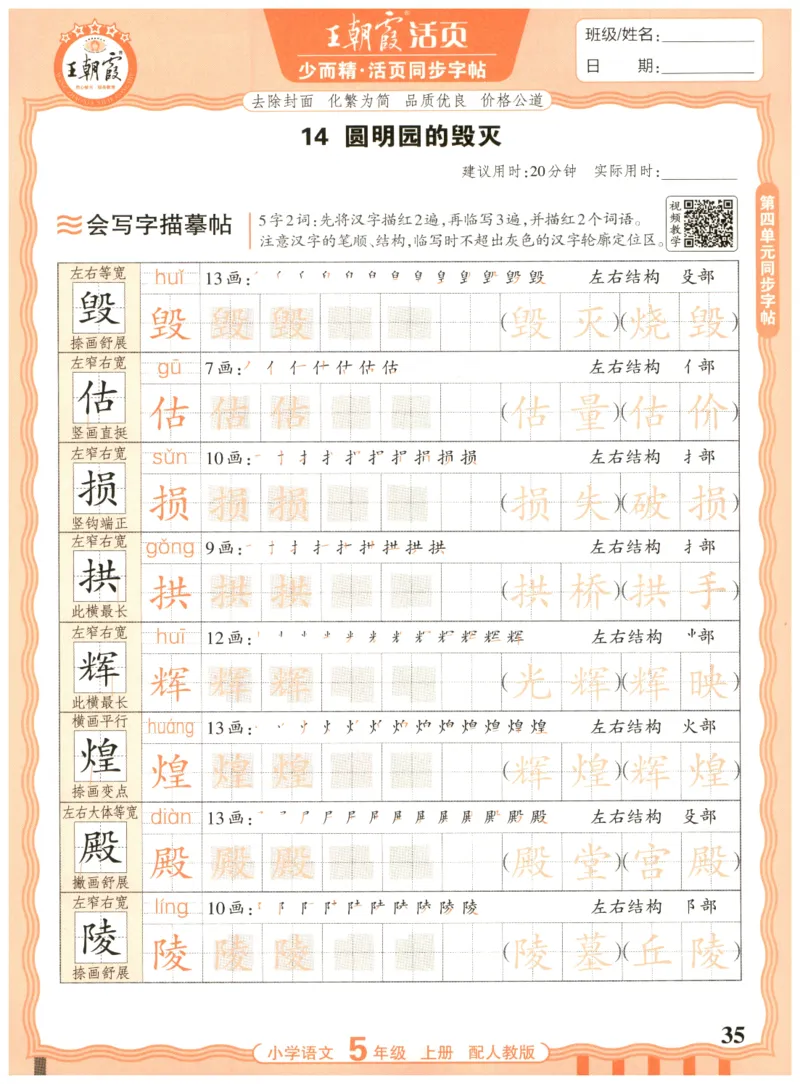 王朝霞
王朝霞 活页
少而精·活页同步字帖
班级/姓名:
日 期:
去除封面 化繁为简 品质优良 价格公道
14 圆明园的毁灭
建议用时:20分钟 实际用时:
会写字描摹帖
5字2词:先将汉字描红2遍,再临写3遍,并描红2个词语。
注意汉字的笔顺、结构,临写时不超出灰色的汉字轮廓定位区。
视频教学
第四单元同步字帖
左右等宽 huǐ 13画: 左右结构 殳部
毁 毁 毁 毁 (毁灭)(烧毁)
捺画舒展
左窄右宽 gū 7画: 左右结构 亻部
估 估 估 估 (估量)(估价)
竖画直挺
左窄右宽 sǔn 10画: 左右结构 扌部
损 损 损 损 (损失)(破损)
竖钩端正
左窄右宽 gǒng 9画: 左右结构 扌部
拱 拱 拱 拱 (拱桥)(拱手)
此横最长
左窄右宽 huī 12画: 左右结构 ⺌部
辉 辉 辉 辉 (光辉)(辉映)
此横最长
横画平行 huáng 13画: 左右结构 火部
煌 煌 煌 煌 (辉煌)(辉煌)
捺画变点
左右大体等宽 diàn 13画: 左右结构 殳部
殿 殿 殿 殿 (殿堂)(宫殿)
撇画舒展
左窄右宽 líng 10画: 左右结构 阝部
陵 陵 陵 陵 (陵墓)(丘陵)
捺画舒展
35
小学语文 5年级 上册 配人教版